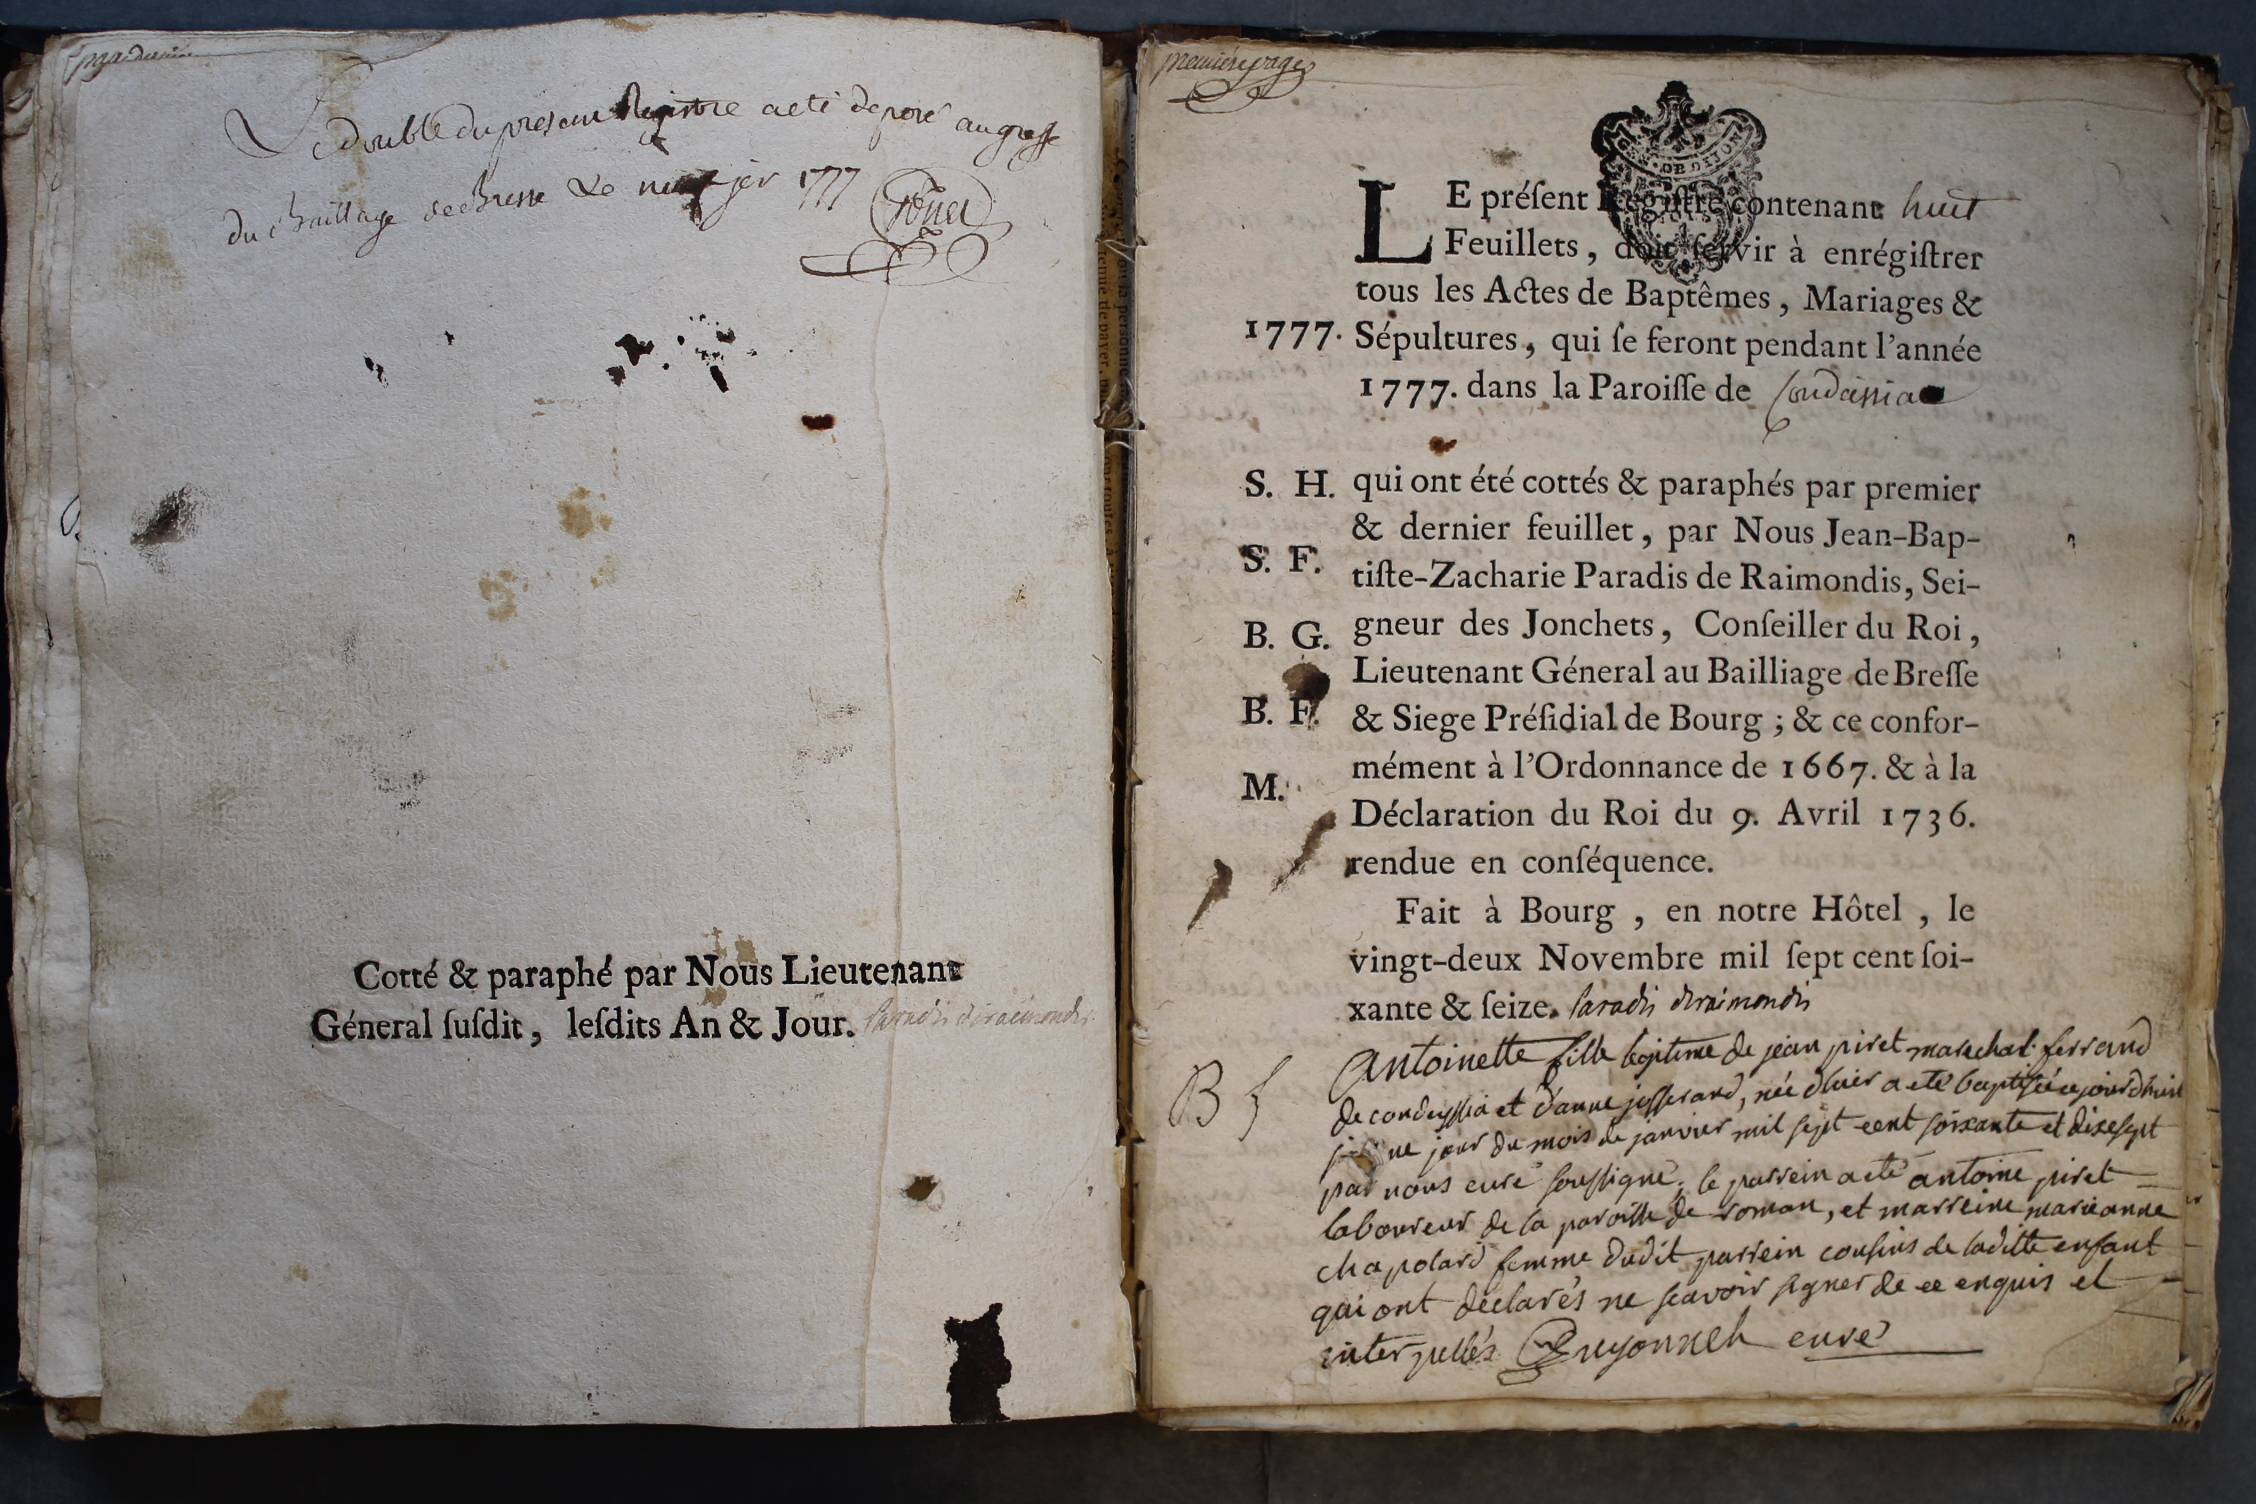 Le double du present Registre a eté deposé au greffe
du Bailliage de Bresse Le neuf jer 1777
Cotté & paraphé par Nous Lieutenant
Géneral ſuſdit, leſdits An & Jour. Paradis deraimondis
premiere page
LE préſent Regiſtre contenant huit
Feuillets, doit ſervir à enrégiſtrer
tous les Actes de Baptêmes, Mariages &
1777. Sépultures, qui ſe feront pendant l'année
1777. dans la Paroiſſe de Condaissia
S. H. qui ont été cottés & paraphés par premier
& dernier feuillet, par Nous Jean-Bap-
S. F. tiſte-Zacharie Paradis de Raimondis, Sei-
B. G. gneur des Jonchets, Conſeiller du Roi,
Lieutenant Géneral au Bailliage de Breſſe
B. F. & Siege Préſidial de Bourg ; & ce confor-
mément à l'Ordonnance de 1667. & à la
M. Déclaration du Roi du 9. Avril 1736.
rendue en conſéquence.
Fait à Bourg , en notre Hôtel , le
vingt-deux Novembre mil ſept cent ſoi-
xante & ſeize. Paradis deraimondis
B f Antoinette fille legitime de jean piret marechal ferrand
de condeyssia et d'anne josserand, née d'hier a eté baptisée cejourdhuit
jour du mois de janvier mil sept cent soixante et dixesept
par nous curé soussigné, le parrein a eté antoine piret
laboureur de la paroisse de roman, et marreine marieanne
chapolard femme dudit parrein cousins de laditte enfant
qui ont déclarés ne scavoir signer de ce enquis et
interpellés Guyonneh curé